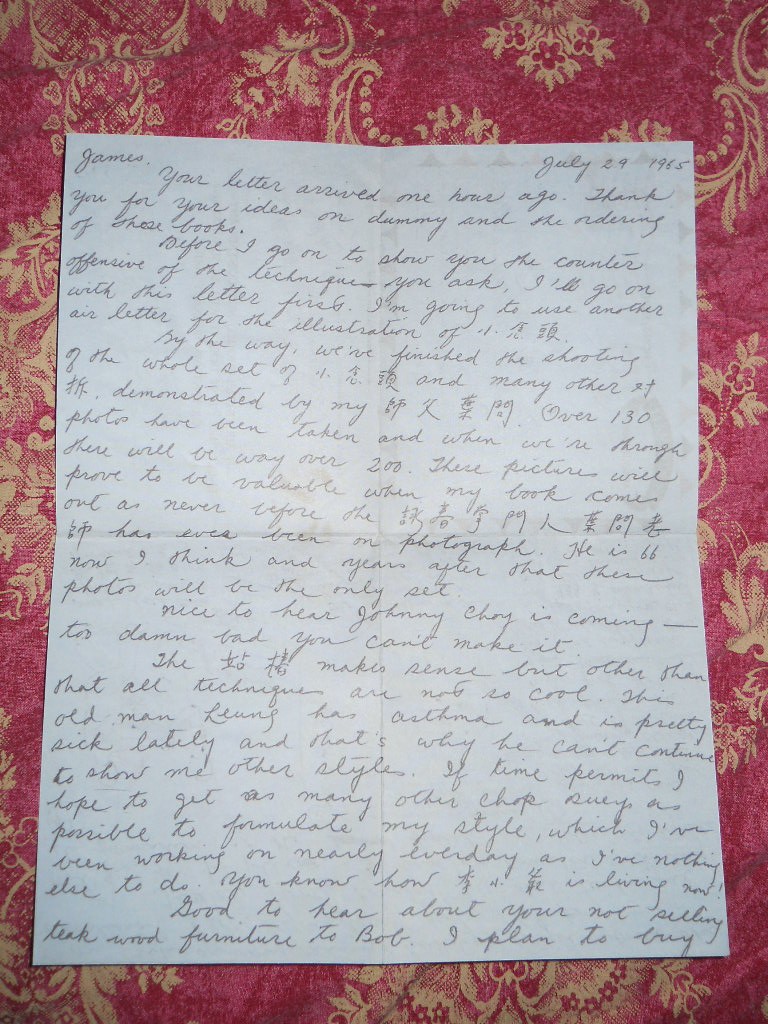 James. July 29 1965
Your letter arrived one hour ago. Thank
you for your ideas on dummy and the ordering
of these books.
Before I go on to show you the counter
offensive of the technique you ask, I'll go on
with this letter first. I'm going to use another
air letter for the illustration of 小念頭.
By the way, we've finished the shooting
of the whole set of 小念頭 and many other
拆, demonstrated by my 師父葉問. Over 130
photos have been taken and when we're through
there will be way over 200. These pictures will
prove to be valuable when my book comes
out as never before the 詠春掌門人葉問老
師 has ever been on photograph. He is 66
now I think and years after that these
photos will be the only set.
Nice to hear Johnny Choy is coming —
too damn bad you can't make it.
The makes sense but other than
that all techniques are not so cool. This
old man Leung has asthma and is pretty
sick lately and that's why he can't continue
to show me other styles. If time permits I
hope to get as many other chop sueys as
possible to formulate my style, which I've
been working on nearly everday as I've nothing
else to do. You know how 李小龍 is living now!
Good to hear about your not selling
teak wood furniture to Bob. I plan to buy